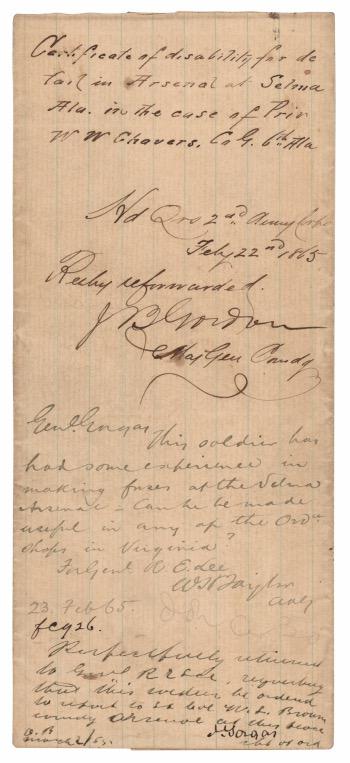 Certificate of disability for de
tail in Arsenal at Selma
Ala. in the case of Priv
W W Chavers. Co G. 6th Ala
Hd Qrs 2nd Army Corps
Feby 22nd 1865
Resby reforwarded.
J B Gordon
Maj Genl Comdg
Genl. Gorgas
This soldier has
had some experience in
making fuses at the Selma
Arsenal - Can he be made
useful in any of the Ord.
shops in Virginia?
For Genl R. E. Lee
W H Taylor
AAG
23 Feb 65.
Respectfully returned
to Genl R E Lee, requesting
that this soldier be ordered
to report to Lt Col W. L. Brown
comdg Arsenal at this place
J. Gorgas
O. B.
March 2/65